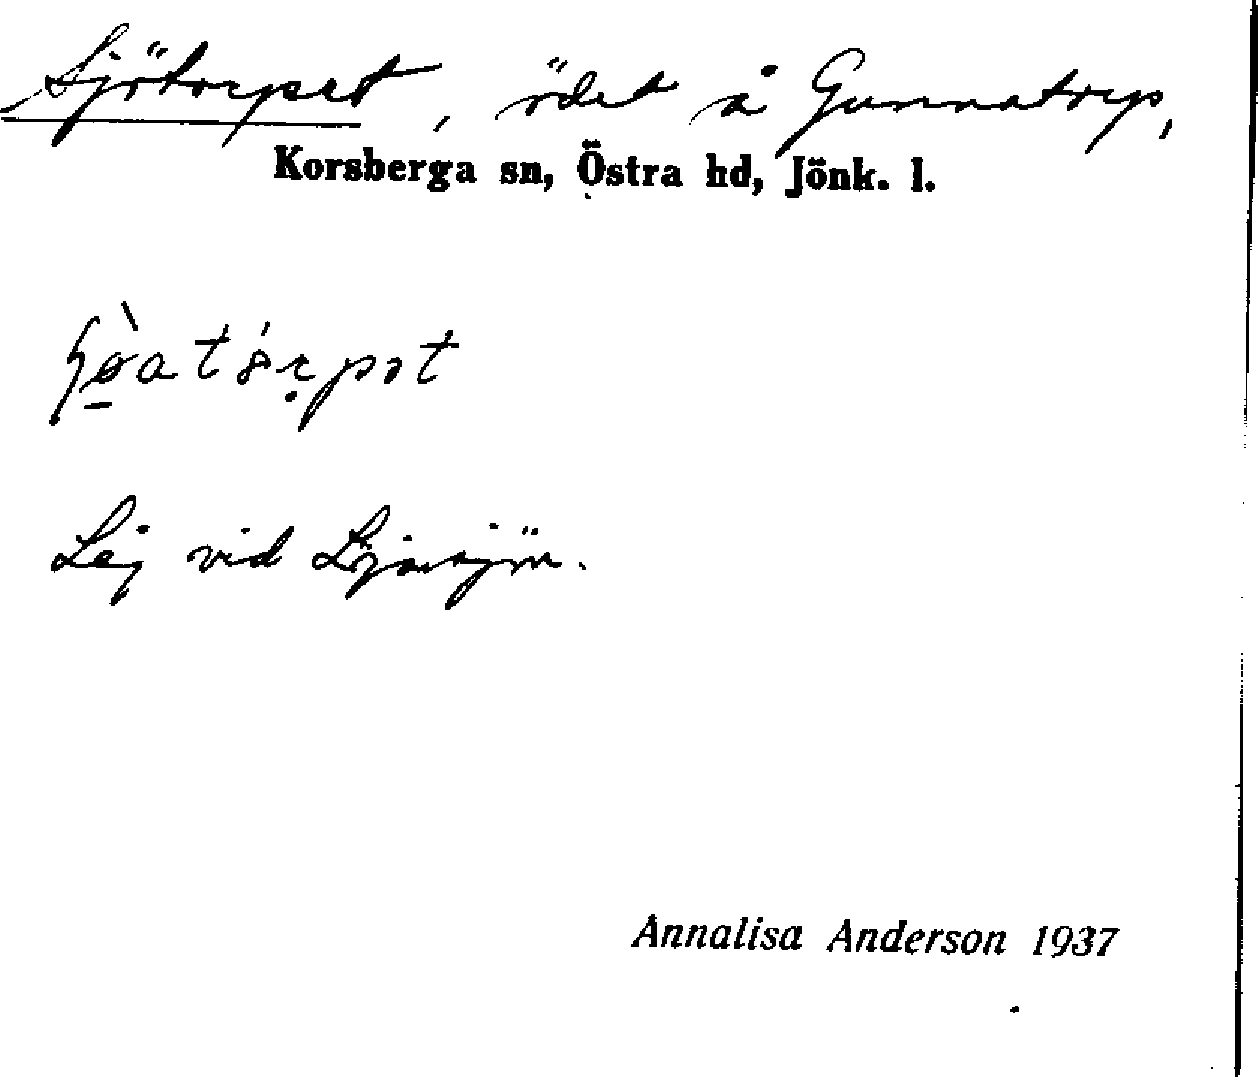 Sjötorpet, ödet å Gunnatorp,
Korsberga sn, Östra hd, Jönk. l.
Låg vid
Annalisa Anderson 1937